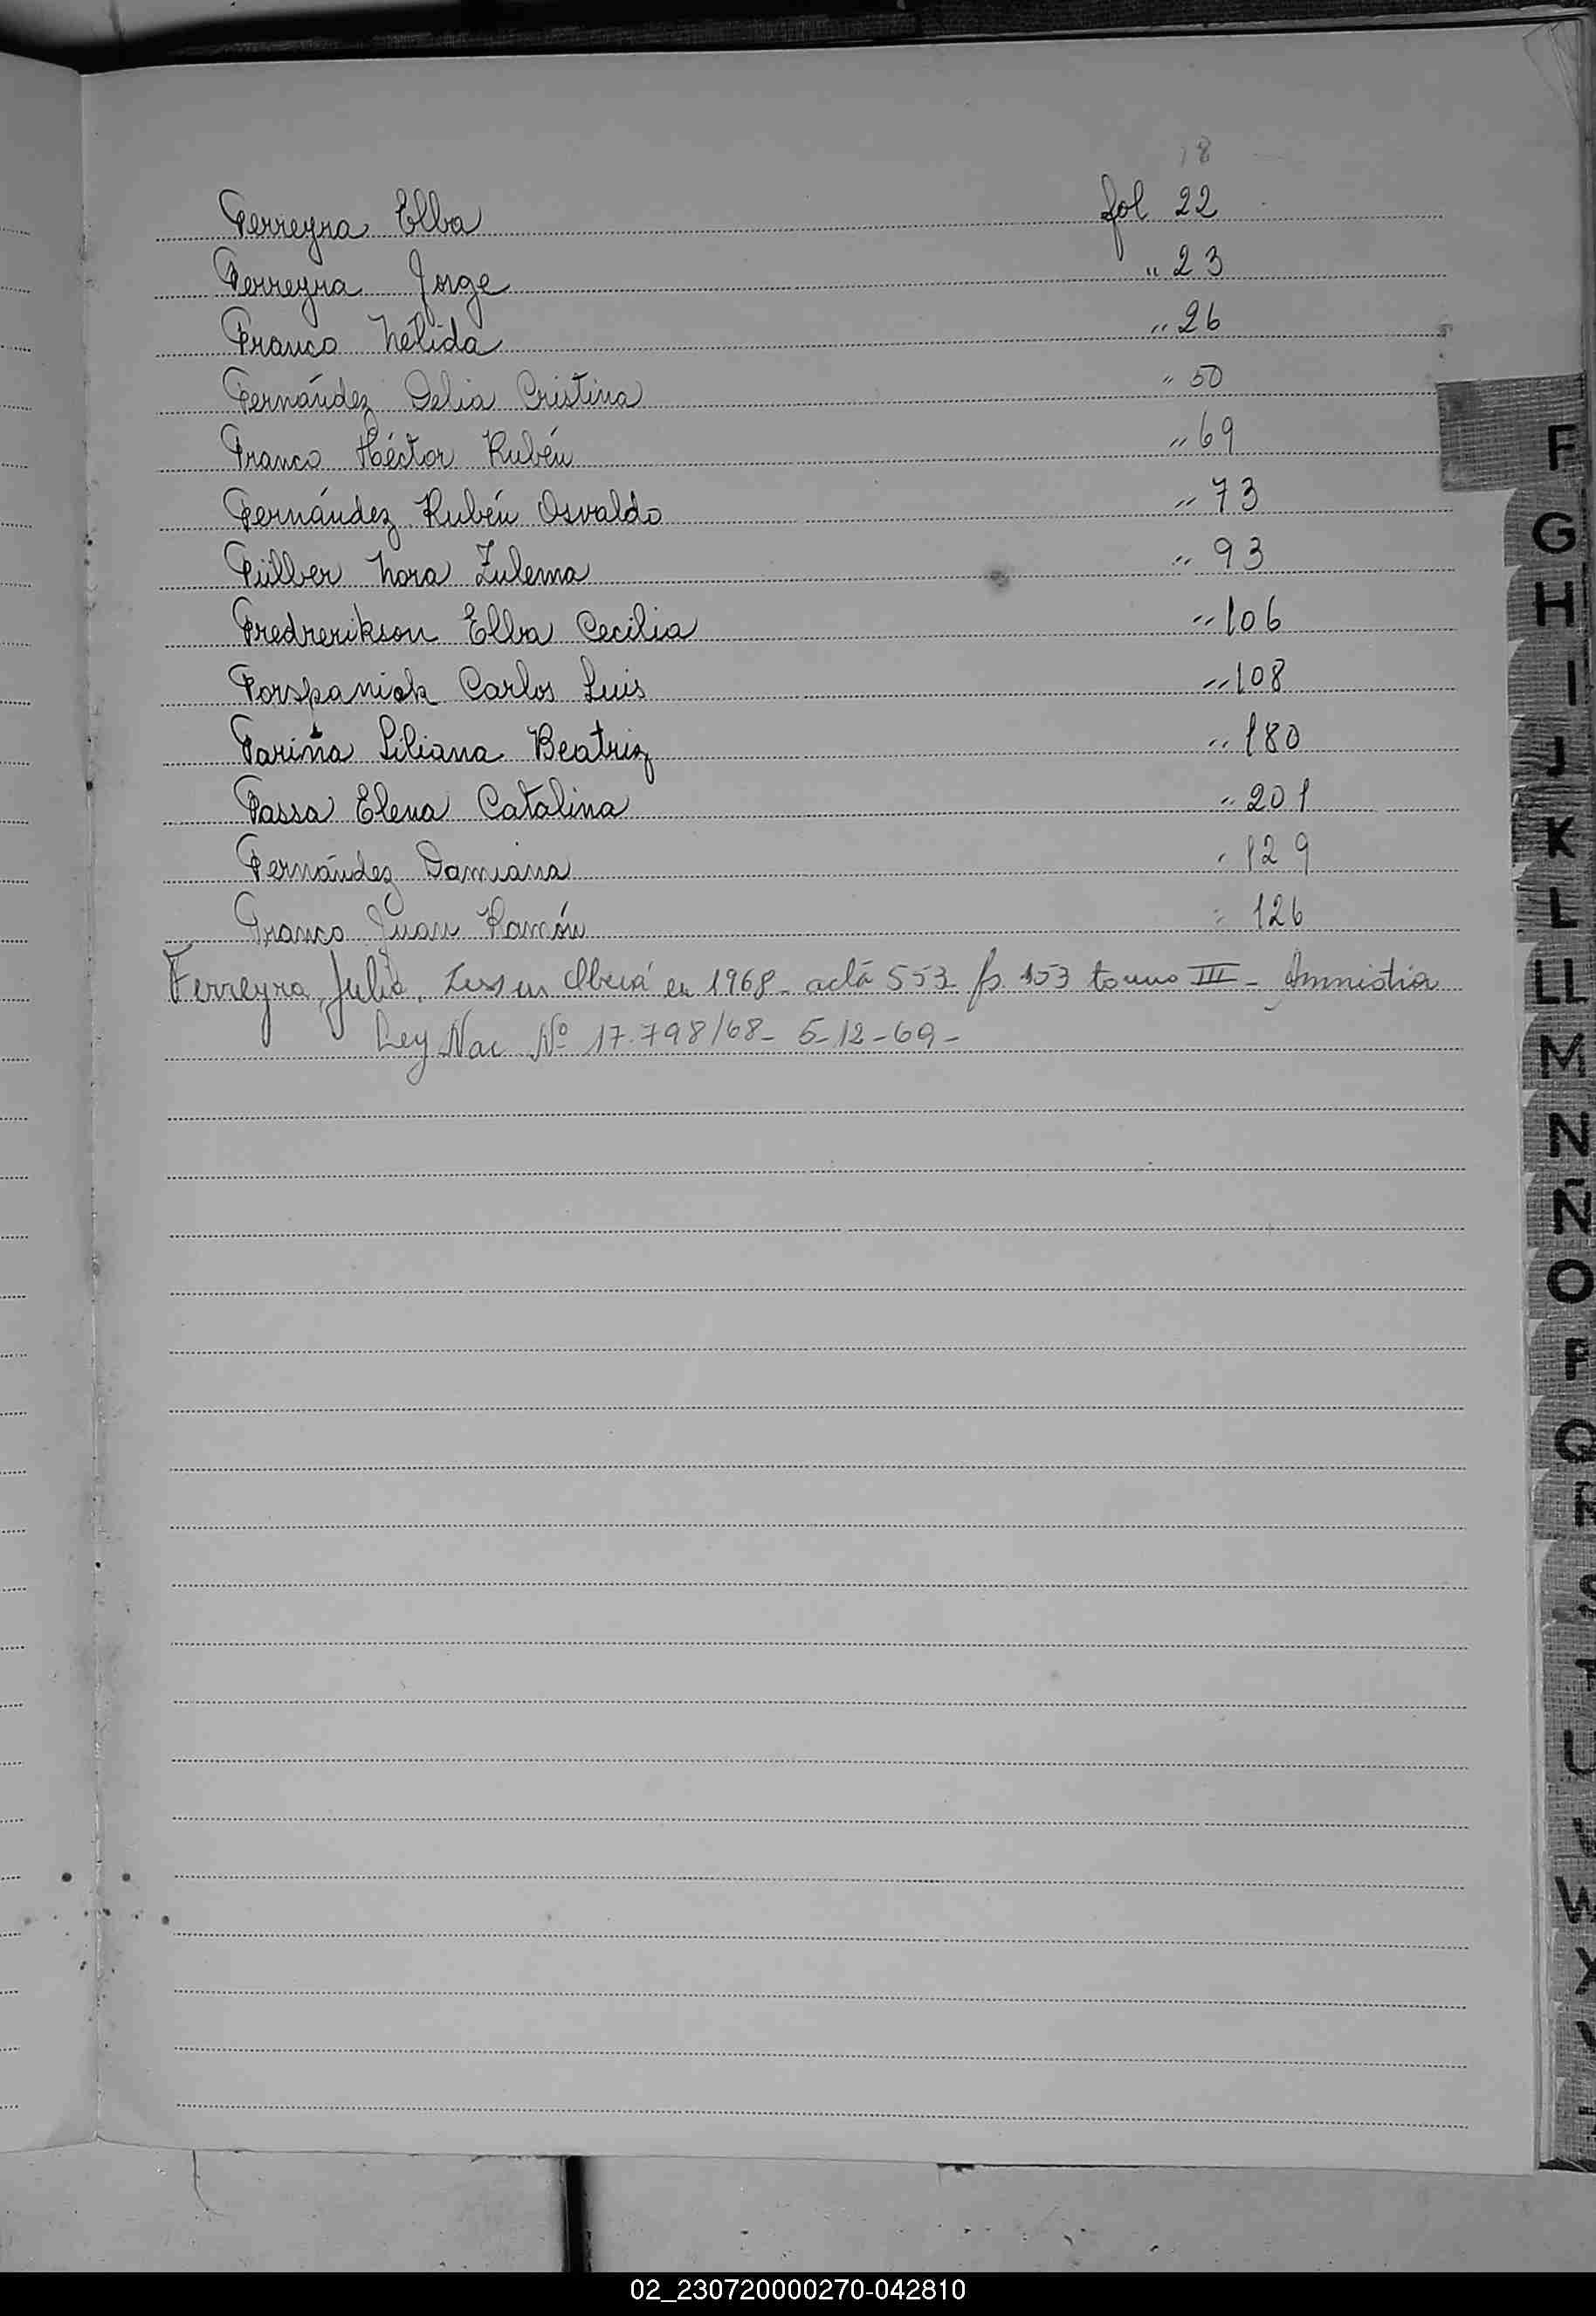 18
Ferreyra Elba fol 22
Ferreyra Jorge " 23
Franco Nélida " 26
Fernández Delia Cristina " 50
Franco Héctor Rubén " 69
Fernández Rubén Osvaldo " 73
Fülber Nora Zulema " 93
Fredrerikson Elba Cecilia " 106
Forspaniak Carlos Luis " 108
Fariña Liliana Beatriz " 180
Fassa Elena Catalina " 201
Fernández Damiana " 129
Franco Juan Ramón " 126
Ferreyra, Julio. en Oberá en 1968 - acta 553 fs 153 tomo III - Amnistia
Ley Nac Nº 17.798/68 - 5-12-69 -
F
G
H
I
J
K
L
LL
M
N
Ñ
O
P
Q
R
S
T
U
V
W
X
02_230720000270-042810